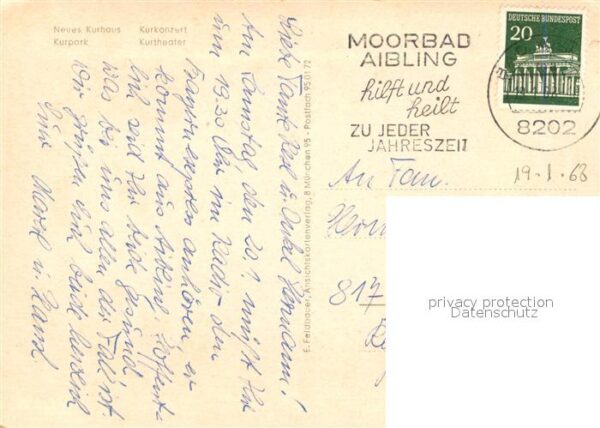 Neues Kurhaus Kurkonzert
Kurpark Kurtheater
Liebe Tante Resl u. Onkel Hermann!
Am Samstag, den 20.1. müßt Ihr
um 19.30 Uhr im Radio den
anhören er
kommt aus Aibling. Hoffent-
lich seid Ihr beide gesund
was bei uns allen der Fall ist.
Wir grüßen Euch beide herzlich
Eure u.
E. Feldbauer, Ansichtskartenverlag, 8 München 95 - Postfach 950172
MOORBAD
AIBLING
hilft und
heilt
ZU JEDER
JAHRESZEIT
DEUTSCHE BUNDESPOST
20
8202
19-1-68
An Fam.
817
privacy protection
Datenschutz